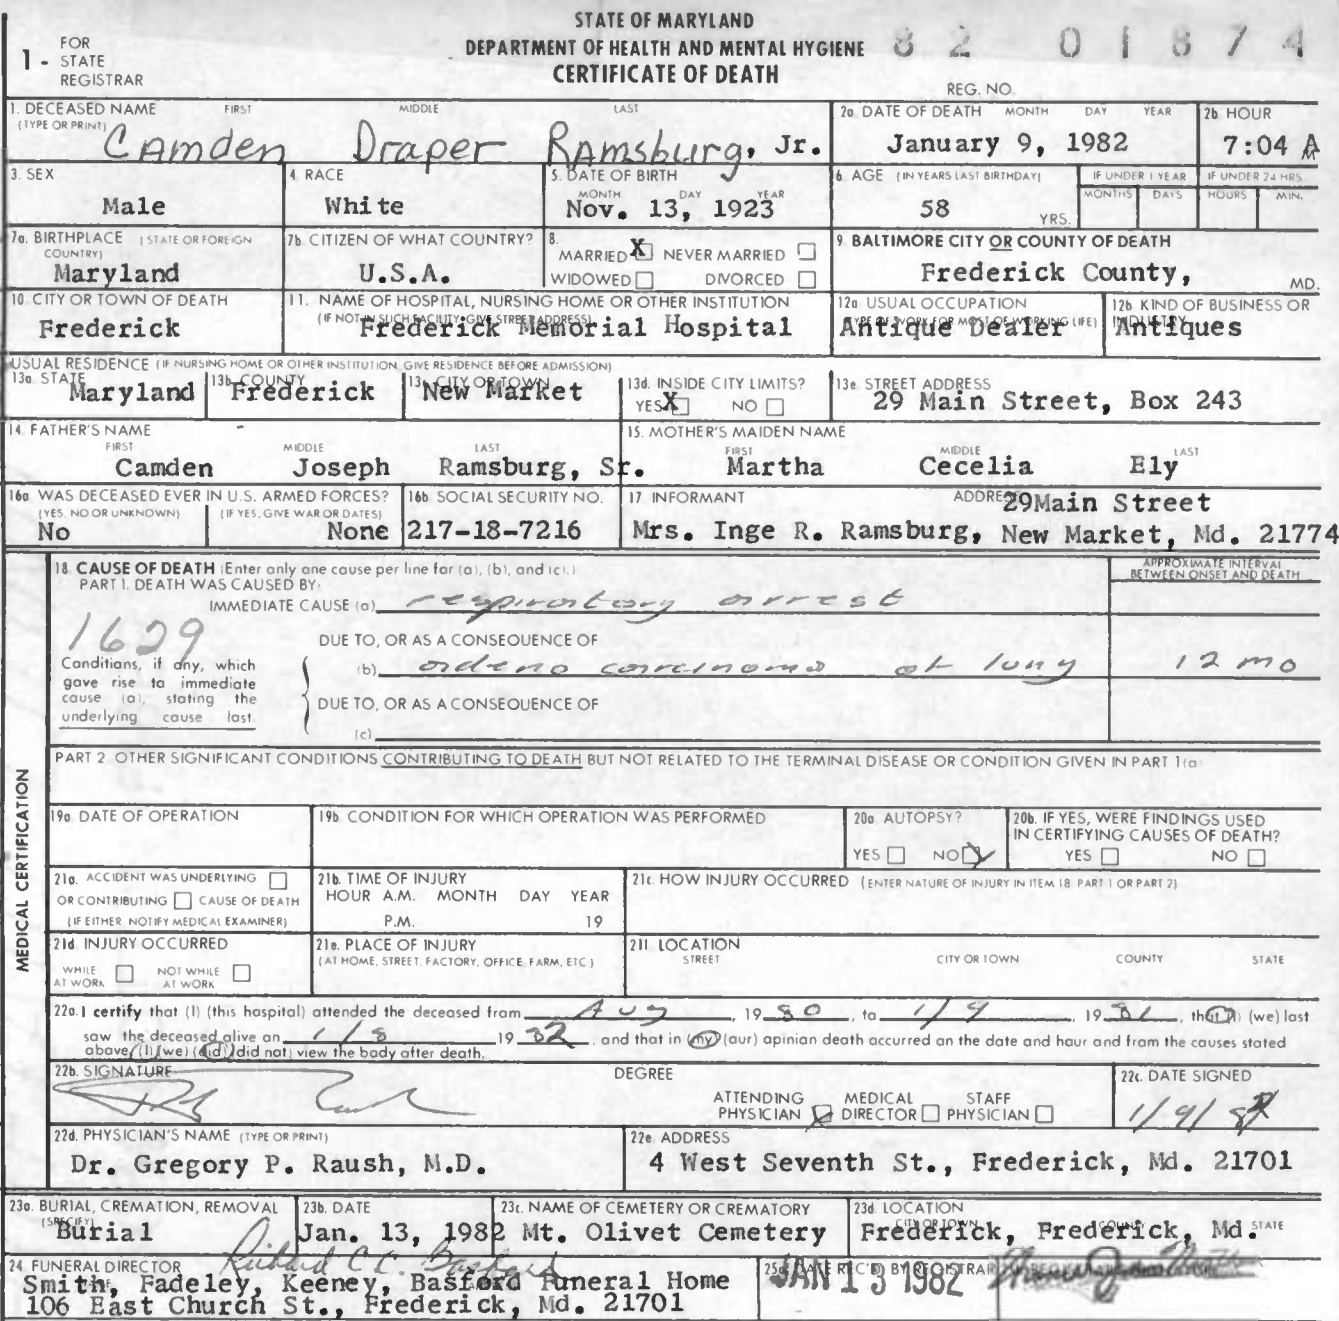 STATE OF MARYLAND
DEPARTMENT OF HEALTH AND MENTAL HYGIENE
CERTIFICATE OF DEATH
82 01874
1 - FOR STATE REGISTRAR
REG. NO.
1. DECEASED NAME (TYPE OR PRINT) FIRST MIDDLE LAST
Camden Draper Ramsburg, Jr.
2a. DATE OF DEATH MONTH DAY YEAR
January 9, 1982
2b HOUR
7:04 A M
3. SEX
Male
4. RACE
White
5. DATE OF BIRTH MONTH DAY YEAR
Nov. 13, 1923
6. AGE (IN YEARS LAST BIRTHDAY)
58 YRS.
IF UNDER 1 YEAR MONTHS DAYS
IF UNDER 24 HRS. HOURS MIN.
7a. BIRTHPLACE (STATE OR FOREIGN COUNTRY)
Maryland
7b. CITIZEN OF WHAT COUNTRY?
U.S.A.
8. MARRIED X NEVER MARRIED
WIDOWED DIVORCED
9. BALTIMORE CITY OR COUNTY OF DEATH
Frederick County, MD.
10. CITY OR TOWN OF DEATH
Frederick
11. NAME OF HOSPITAL, NURSING HOME OR OTHER INSTITUTION
(IF NOT IN SUCH FACILITY, GIVE STREET ADDRESS)
Frederick Memorial Hospital
12a. USUAL OCCUPATION
(TYPE OF WORK FOR MOST OF WORKING LIFE)
Antique Dealer
12b. KIND OF BUSINESS OR INDUSTRY
Antiques
USUAL RESIDENCE (IF NURSING HOME OR OTHER INSTITUTION GIVE RESIDENCE BEFORE ADMISSION)
13a. STATE
Maryland
13b. COUNTY
Frederick
13c. CITY OR TOWN
New Market
13d. INSIDE CITY LIMITS?
YES X NO
13e. STREET ADDRESS
29 Main Street, Box 243
14. FATHER'S NAME FIRST MIDDLE LAST
Camden Joseph Ramsburg, Sr.
15. MOTHER'S MAIDEN NAME FIRST MIDDLE LAST
Martha Cecelia Ely
16a. WAS DECEASED EVER IN U.S. ARMED FORCES?
(YES, NO OR UNKNOWN) (IF YES, GIVE WAR OR DATES)
No None
16b. SOCIAL SECURITY NO.
217-18-7216
17. INFORMANT ADDRESS
29Main Street
Mrs. Inge R. Ramsburg, New Market, Md. 21774
MEDICAL CERTIFICATION
18. CAUSE OF DEATH (Enter only one cause per line for (a), (b), and (c).)
APPROXIMATE INTERVAL BETWEEN ONSET AND DEATH
PART 1. DEATH WAS CAUSED BY:
IMMEDIATE CAUSE (a) respiratory arrest
1629
DUE TO, OR AS A CONSEQUENCE OF
Conditions, if any, which gave rise to immediate cause (a), stating the underlying cause last.
(b) adeno carcinoma of lung 12 mo
DUE TO, OR AS A CONSEQUENCE OF
(c)
PART 2 OTHER SIGNIFICANT CONDITIONS CONTRIBUTING TO DEATH BUT NOT RELATED TO THE TERMINAL DISEASE OR CONDITION GIVEN IN PART 1(a)
19a. DATE OF OPERATION
19b. CONDITION FOR WHICH OPERATION WAS PERFORMED
20a. AUTOPSY?
YES NO
20b. IF YES, WERE FINDINGS USED IN CERTIFYING CAUSES OF DEATH?
YES NO
21a. ACCIDENT WAS UNDERLYING
OR CONTRIBUTING CAUSE OF DEATH
(IF EITHER, NOTIFY MEDICAL EXAMINER)
21b. TIME OF INJURY
HOUR A.M. MONTH DAY YEAR
P.M. 19
21c. HOW INJURY OCCURRED (ENTER NATURE OF INJURY IN ITEM 18 PART 1 OR PART 2)
21d. INJURY OCCURRED
WHILE AT WORK NOT WHILE AT WORK
21e. PLACE OF INJURY
(AT HOME, STREET, FACTORY, OFFICE, FARM, ETC.)
21f. LOCATION
STREET CITY OR TOWN COUNTY STATE
22a. I certify that (I) (this hospital) attended the deceased from Aug, 1980, to 1/9, 1982, that (I) (we) last
saw the deceased alive on 1/8 1982, and that in (my) (our) opinion death occurred on the date and hour and from the causes stated
above, (I) (we) (did) (did not) view the body after death.
22b. SIGNATURE
DEGREE
ATTENDING PHYSICIAN MEDICAL DIRECTOR STAFF PHYSICIAN
22c. DATE SIGNED
1/9/82
22d. PHYSICIAN'S NAME (TYPE OR PRINT)
Dr. Gregory P. Raush, M.D.
22e. ADDRESS
4 West Seventh St., Frederick, Md. 21701
23a. BURIAL, CREMATION, REMOVAL (SPECIFY)
Burial
23b. DATE
Jan. 13, 1982
23c. NAME OF CEMETERY OR CREMATORY
Mt. Olivet Cemetery
23d. LOCATION CITY OR TOWN COUNTY STATE
Frederick, Frederick, Md.
24. FUNERAL DIRECTOR
Richard C. C. Basford
Smith, Fadeley, Keeney, Basford Funeral Home
106 East Church St., Frederick, Md. 21701
25a. DATE REC'D. BY REGISTRAR
JAN 13 1982